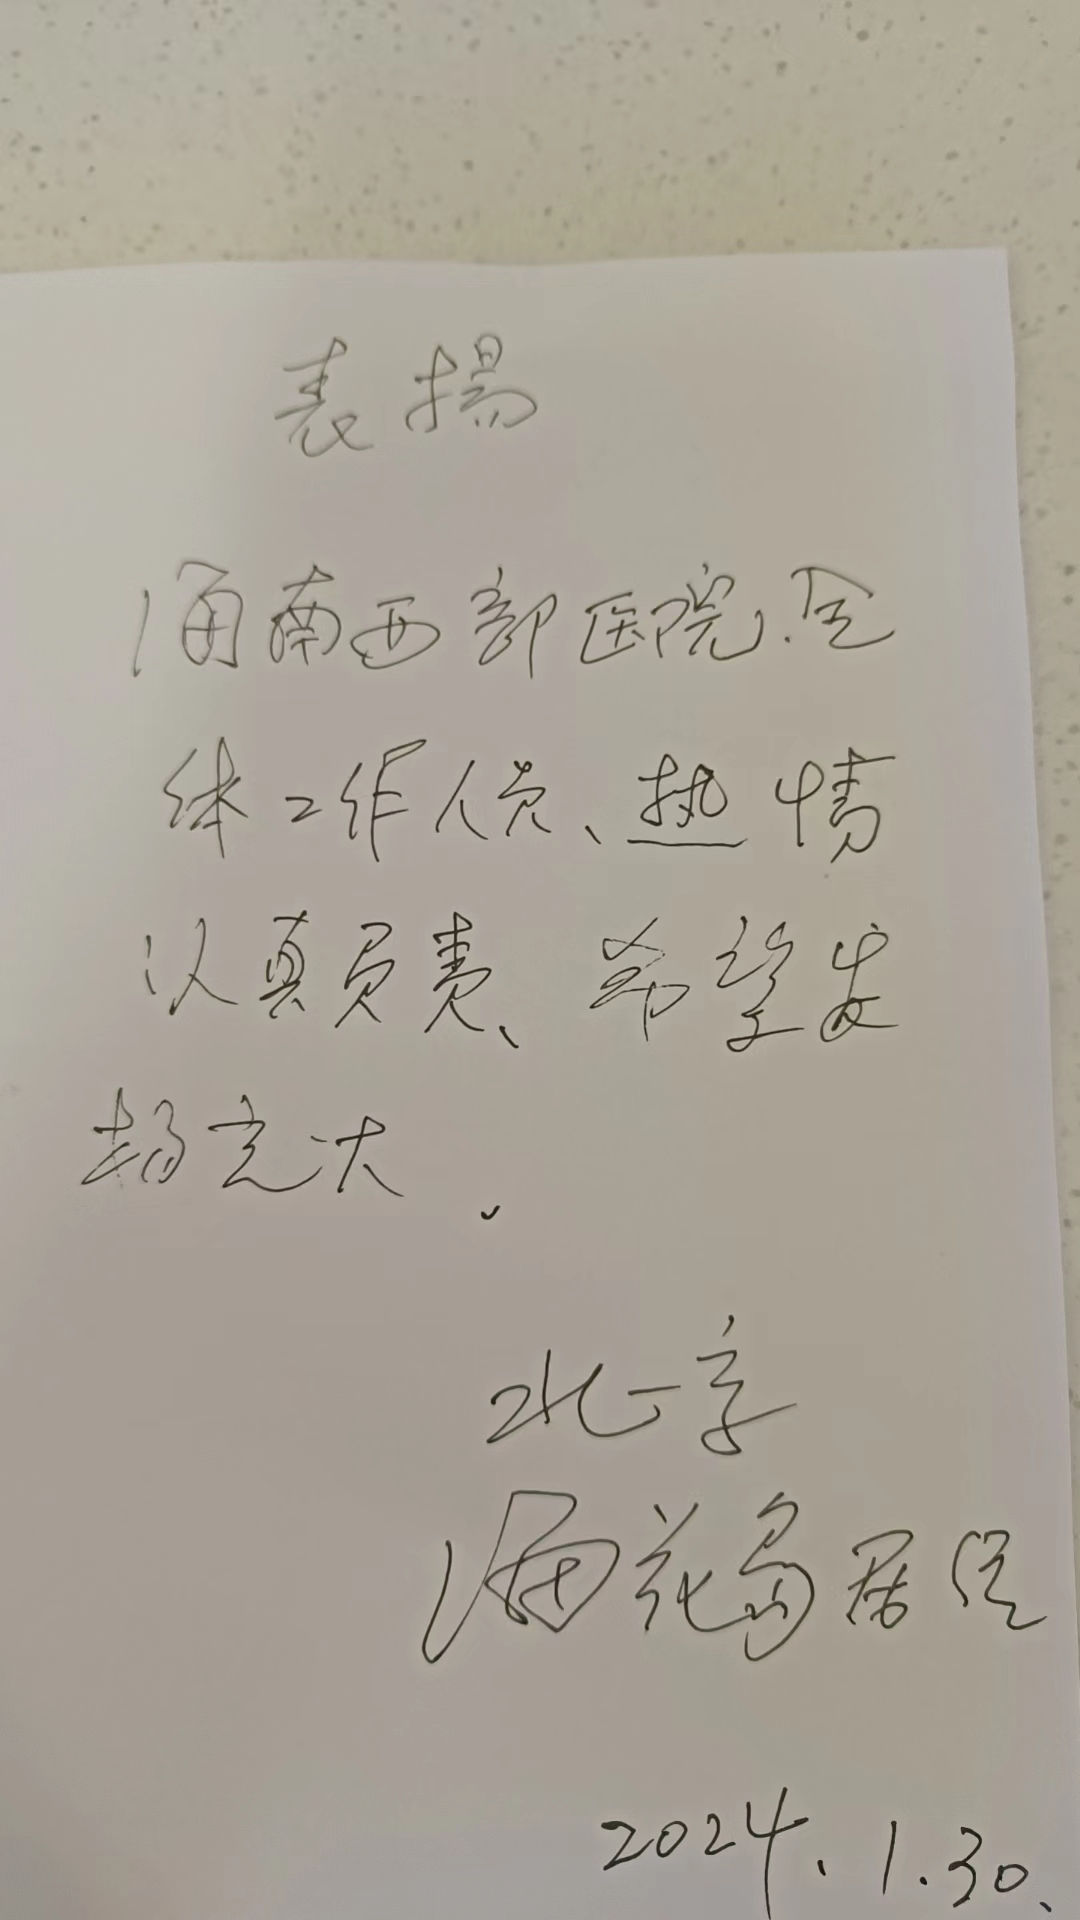 表揚
海南西部医院.全
体工作人员、热情
认真负责、希望发
扬光大.
北京
海花岛居民
2024.1.30.